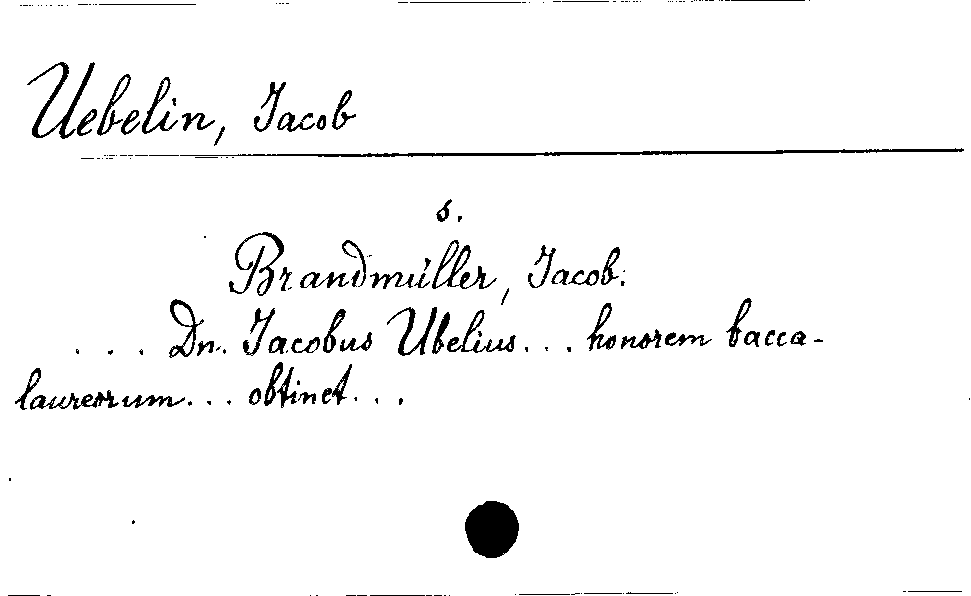 Uebelin, Jacob
s.
Brandmüller, Jacob.
... Dn. Jacobus Ubelius... honorem bacca-
laureorum... obtinet...